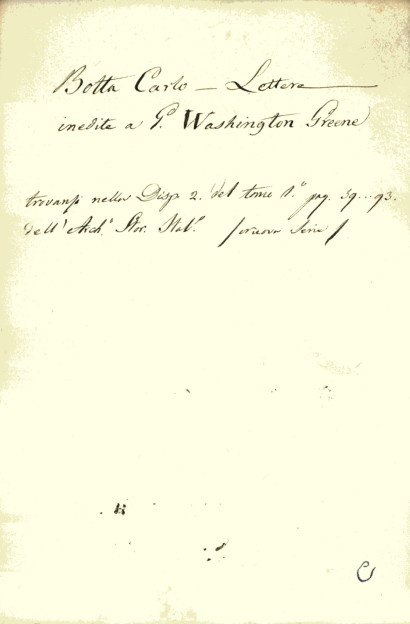 Botta Carlo — Lettere
inedite a G.º Washington Greene
trovansi nella Disp. 2. del tomo 1.º pag. 59...93.
dell'Arch.º Stor. Ital.º (nuova Serie)